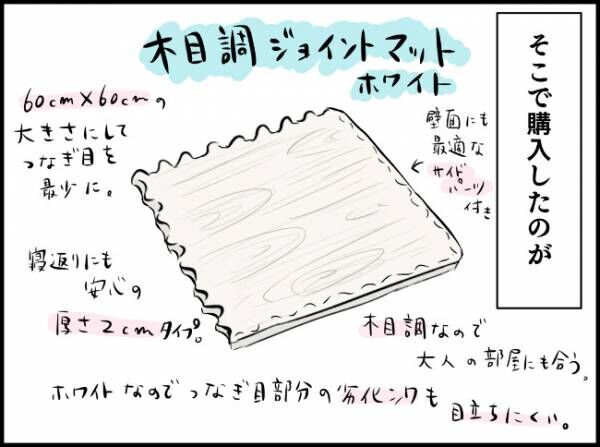 そこで購入したのが
木目調ジョイントマット
ホワイト
60cm×60cmの
大きさにして
つなぎ目を
最少に。
壁面にも
最適な
サイド
パーツ
付き
寝返りにも
安心の
厚さ2cmタイプ。
木目調なので
大人の部屋にも合う。
ホワイトなのでつなぎ目部分の劣化シワも
目立ちにくい。